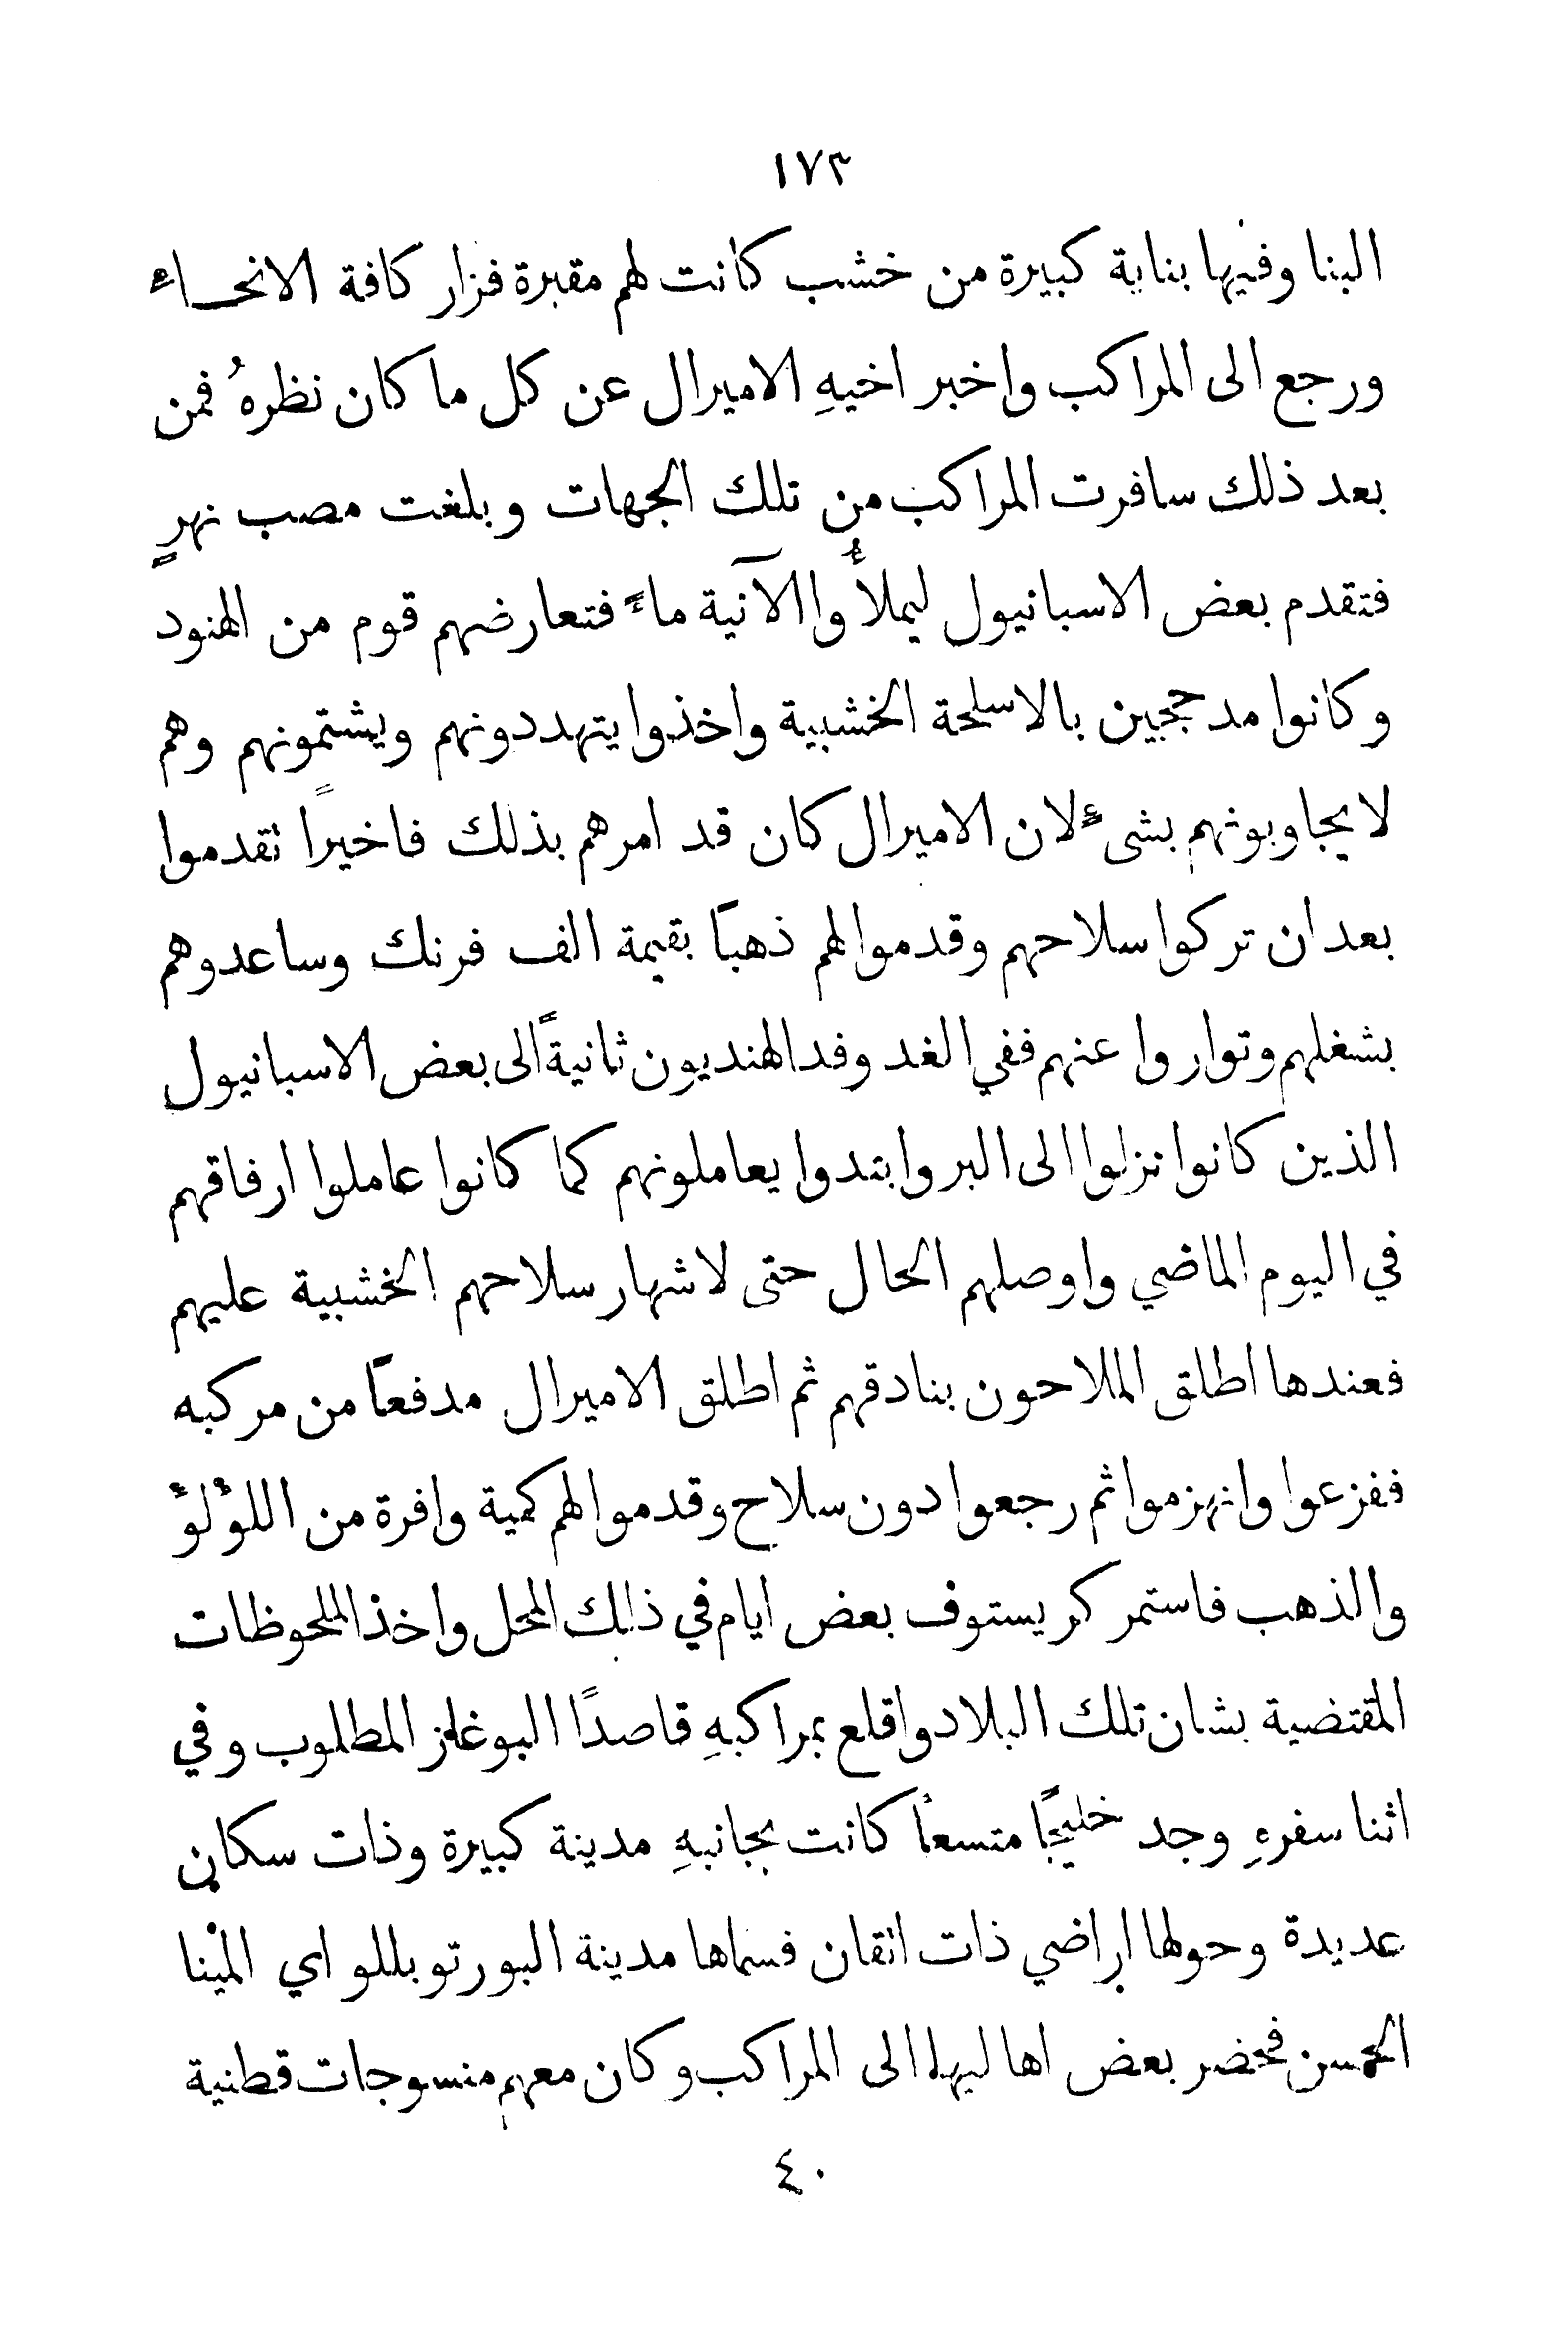 ١٧٣
البنا وفيها بناية كبيرة من خشب كانت لهم مقبرة فزار كافة الانحاء
ورجع الى المراكب واخبر اخيهِ الاميرال عن كل ما كان نظرهُ فمن
بعد ذلك سافرت المراكب من تلك الجهات وبلغت مصب نهرٍ
فتقدم بعض الاسبانيول ليملأُوا الآنية ماءً فتعارضهم قوم من الهنود
وكانوا مدججين بالاسلحة الخشبية واخذوا يتهددونهم ويشتمونهم وهم
لا يجاوبونهم بشيءٍ لان الاميرال كان قد امرهم بذلك فاخيرًا تقدموا
بعد ان تركوا سلاحهم وقدموا لهم ذهبًا بقيمة الف فرنك وساعدوهم
بشغلهم وتواروا عنهم ففي الغد وفد الهنديون ثانيةً الى بعض الاسبانيول
الذين كانوا نزلوا الى البر وابتدوا يعاملونهم كما كانوا عاملوا ارفاقهم
في اليوم الماضي واوصلهم الحال حتى لاشهار سلاحهم الخشبية عليهم
فعندها اطلق الملاحون بنادقهم ثم اطلق الاميرال مدفعًا من مركبه
ففزعوا وانهزموا ثم رجعوا دون سلاح وقدموا لهم كمية وافرة من اللؤلؤ
والذهب فاستمر كريستوف بعض ايام في ذلك المحل واخذ الملحوظات
المقتضية بشان تلك البلاد واقلع بمراكبهِ قاصدًا البوغاز المطلوب وفي
اثنا سفرهِ وجد خليجًا متسعاً كانت بجانبهِ مدينة كبيرة وذات سكان
عديدة وحولها اراضي ذات اتقان فسماها مدينة البورتو بللو اي المينا
الحسن فحضر بعض اهاليها الى المراكب وكان معهم منسوجات قطنية
٤٠